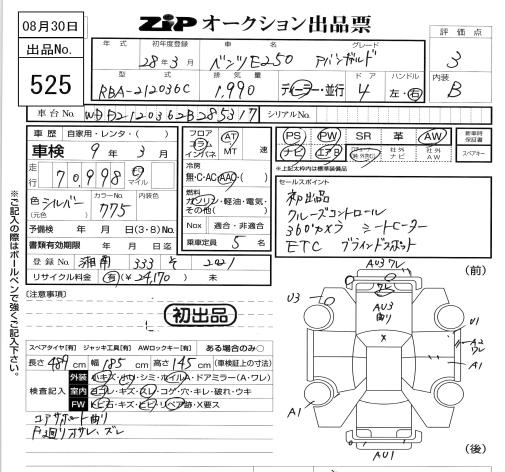 08月30日
ZIP オークション出品票
出品No.
525
年式 初年度登録 車名 グレード
28年3月 ベンツE250 アバンギャルド
評価点
3
型式 排気量 ドア ハンドル
RBA-212036C 1,990 ディーラー・並行 4 左・右
内装
B
車台No. WDD2120362B285317 シリアルNo.
車歴 自家用・レンタ・( )
車検 9年3月
走行 70,998 キロ マイル
色 シルバー (元色) カラーNo. 775
予備検 年 月 日(3・8)No.
書類有効期限 年 月 日迄
登録No. 湘南 333 そ 2221
リサイクル料金 有(¥24,170) 未
フロア コラム インパネ AT MT 速
冷房 無・C・AC・AAC・( )
燃料 ガソリン・軽油・電気・その他( )
Nox 適合・非適合
乗車定員 5 名
PS PW SR 革 AW
ナビ エアB 社外ナビ 社外AW
新車時保証書
スペアキー
*上記太枠内は機能評価
セールスポイント
初出品
クルーズコントロール
360°カメラ シートヒーター
ETC ブラインドスポット
※ご記入の際はボールペンで強くご記入下さい。
[注意事項]
初出品
スペアタイヤ[有] ジャッキ工具[有] AWロックキー[有] ある場合のみ○
長さ 489cm 幅 185cm 高さ 145cm (車検証上の寸法)
検査記入
外装 小キズ・小凹・シミ・ホイルA・ドアミラー(A・ワレ)
室内 ヨゴレ・キズ・スレ・コゲ・穴・キレ・破れ・ウキ
FW トビ石・キズ・ヒビ・リペア跡・X要ス
コアサポート曲り
Fマエ回りオサレ、ズレ
(前)
AU3 ワレ
ワレ
AU3
曲り
U3
U1
X
A2
ワレ
A1
A1
AU1
(後)